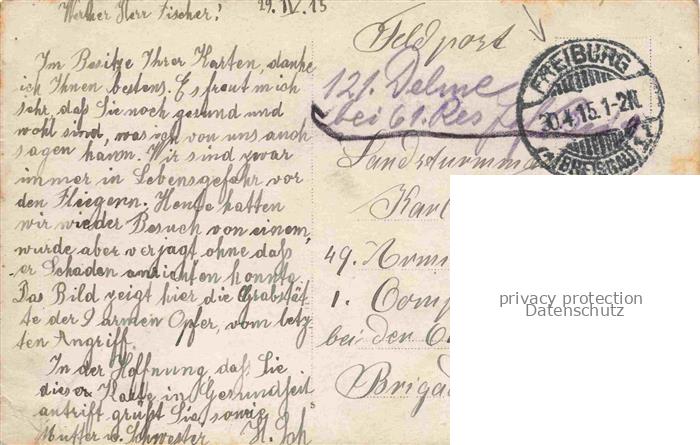 29. IV. 15
Werther Herr Fischer!
Im Besitze Ihrer Karten, danke
ich Ihnen bestens. Es freut mich
sehr, daß Sie noch gesund und
wohl sind, was ich von uns auch
sagen kann. Wir sind zwar
immer in Lebensgefahr vor
den Fliegern. Heute hatten
wir wieder Besuch von einem,
wurde aber verjagt ohne daß
er Schaden anrichten konnte.
Das Bild zeigt hier die Grabstät-
te der 9 armen Opfer, vom letz-
ten Angriff.
In der Hoffnung daß Sie
diese Karte in Gesundheit
antrift grüßt Sie sowie
Mutter u. Schwester H. Sch
Feldpost
121. Delme
bei 61. Res
Landsturmm
Karl
49. Armi
1. Comp
bei den
Brigad
FREIBURG
30.4.15. 1-2N.
(BREISGAU)
privacy protection
Datenschutz